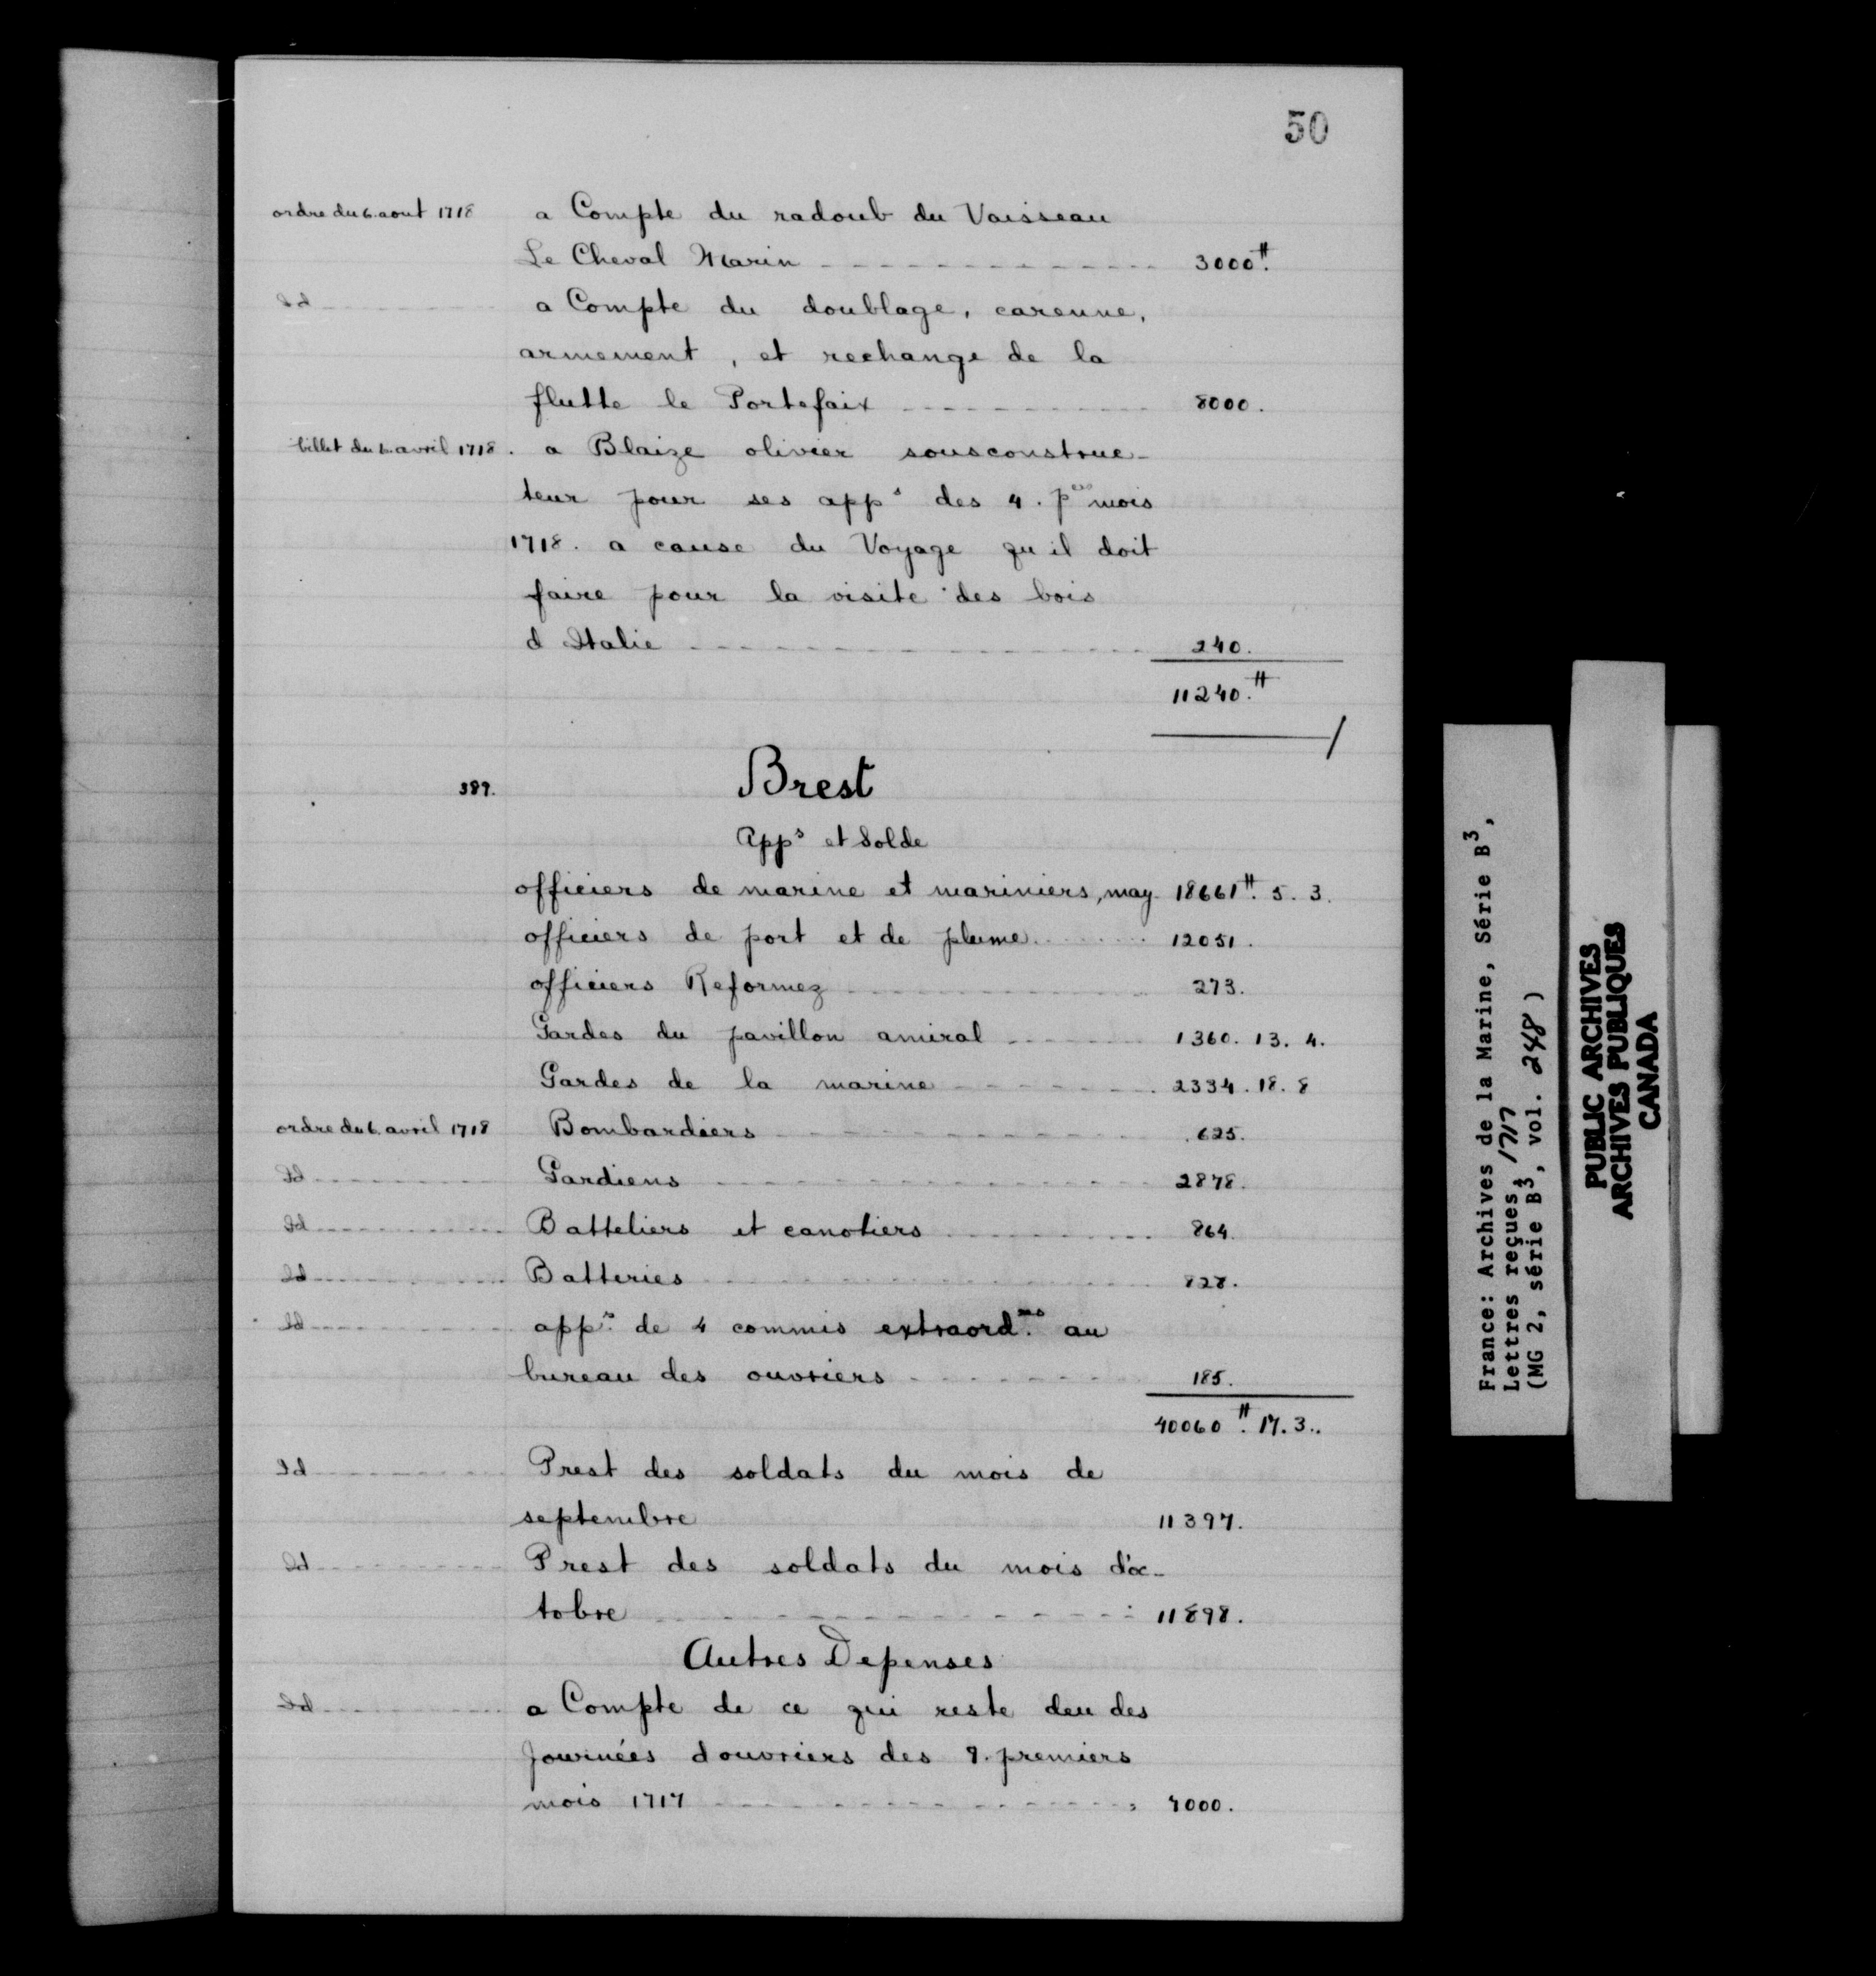 50
ordre du 6. aout 1718 a Compte du radoub du Vaisseau
Le Cheval Marin 3000#.
Id a Compte du doublage, carenne,
armement, et rechange de la
flutte le Portefaix 8000.
billet du 6. avril 1718. a Blaize olivier sousconstruc-
teur pour ses apps des 4. pers mois
1718. a cause du Voyage qu il doit
faire pour la visite des bois
d Italie 240.
11240.#
387. Brest
Apps et Solde
officiers de marine et mariniers, may. 18661#. 5. 3.
officiers de port et de plume 12051.
officiers Reformez 273.
Gardes du pavillon amiral 1360. 13. 4.
Gardes de la marine 2334. 18. 8
ordre du 6. avril 1718 Bombardiers 625.
Id Gardiens 2878.
Id Batteliers et canotiers 864.
Id Batteries 828.
Id apps. de 4 commis extraord.res au
bureau des ouvriers 185.
40060#. 17. 3..
Id Prest des soldats du mois de
septembre 11397.
Id Prest des soldats du mois d'oc-
tobre 11898.
Autres Depenses
Id a Compte de ce qui reste deu des
Journées douvriers des 9. premiers
mois 1717 7000.
France: Archives de la Marine, Série B3,
Lettres reçues, 1717
(MG 2, série B3, vol. 248)
PUBLIC ARCHIVES
ARCHIVES PUBLIQUES
CANADA